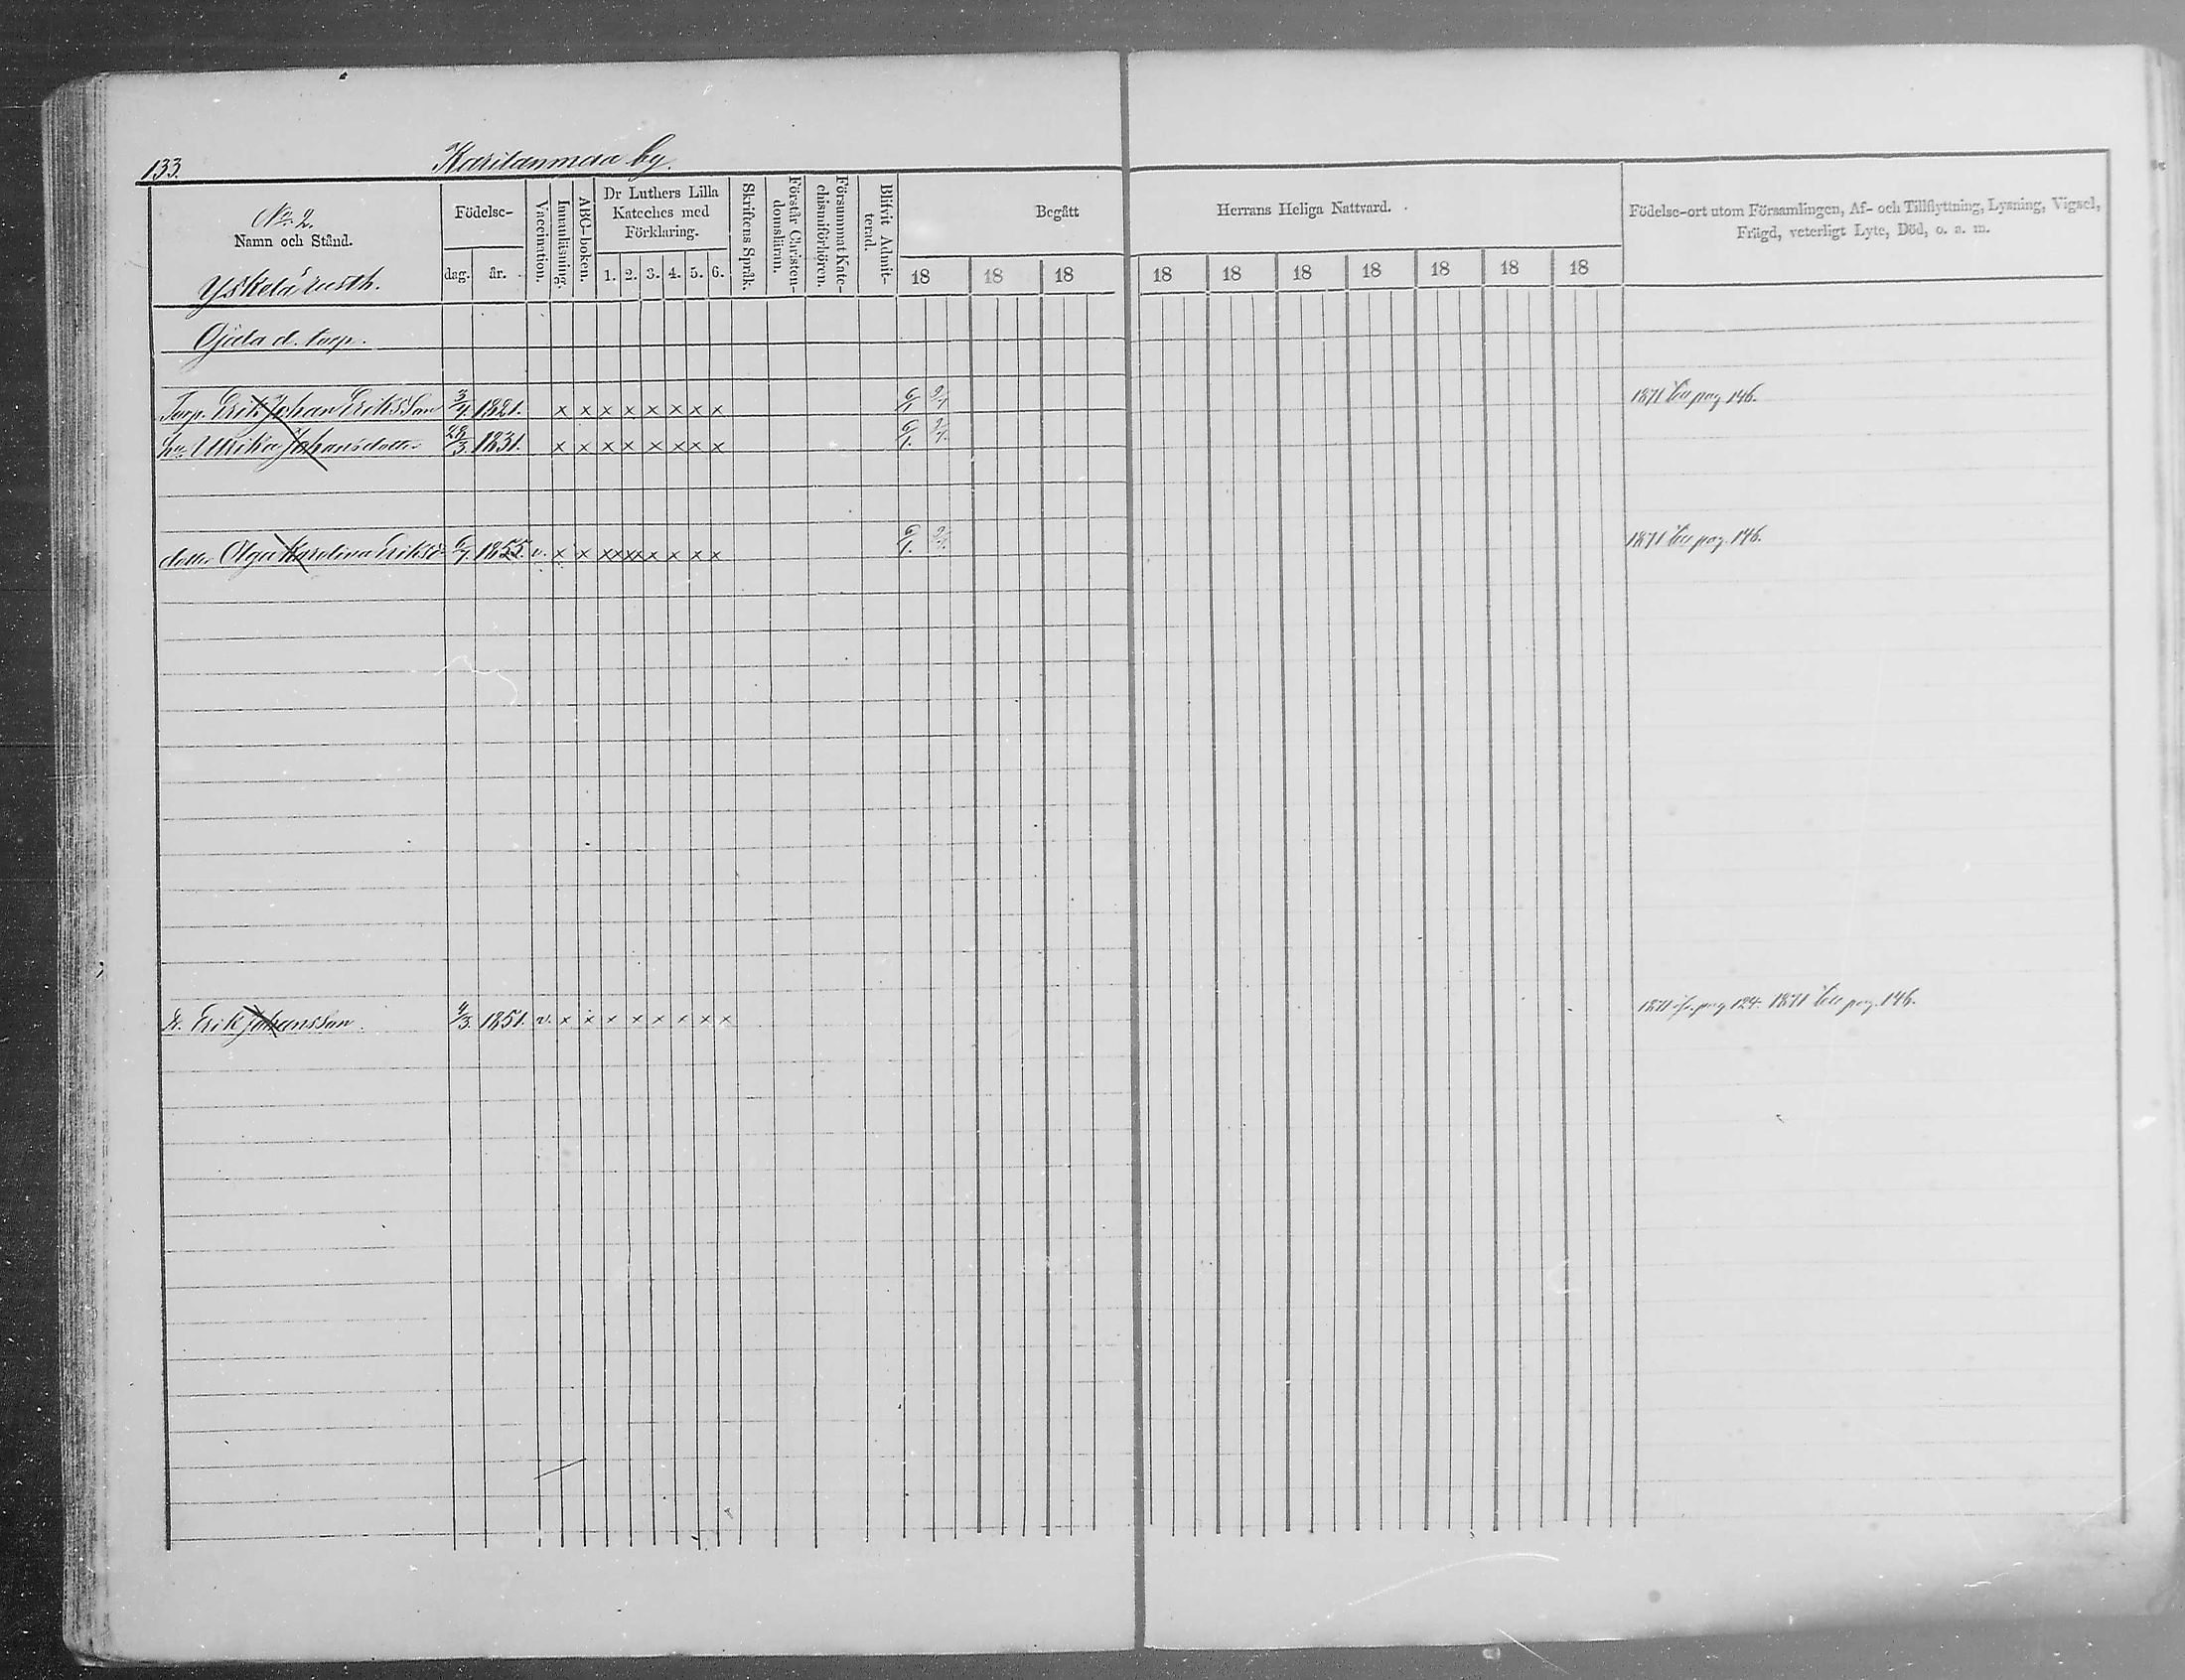 133.
Karilanmaa by.
No 2.
Namn och Stånd.
Yskelä rusth.
Födelse-
dag.
år.
Vaccination.
Innanläsning.
ABC-boken.
Dr Luthers Lilla
Kateches med
Förklaring.
1. 2. 3. 4. 5. 6.
Skriftens Språk.
Förstår Christen-
domsläran.
Försummat Kate-
chismiförhören.
Blifvit Admit-
terad.
Begått
Herrans Heliga Nattvard.
18 18 18 18 18 18 18 18 18 18
Födelse-ort utom Församlingen, Af- och Tillflyttning, Lysning, Vigsel,
Frägd, veterligt Lyte, Död, o. s. m.
Ojala d. torp.
Torp. Erik Johan Eriksson 3/4 1821. x x x x x x x x 6/1 9/7 1871 pag 146.
hu. Ulrika Johansdotter 28/3 1831. x x x x x x x x 6/1. 9/7.
dotter Olga Karolina Eriksd. 6/7 1855. v. x x xx xx x x x x 6/1. 9/7. 1871 pag. 146.
D. Erik Johansson. 4/3. 1851. v. x x x x x x x x 1871 fr. pag. 124. 1871 pag. 146.